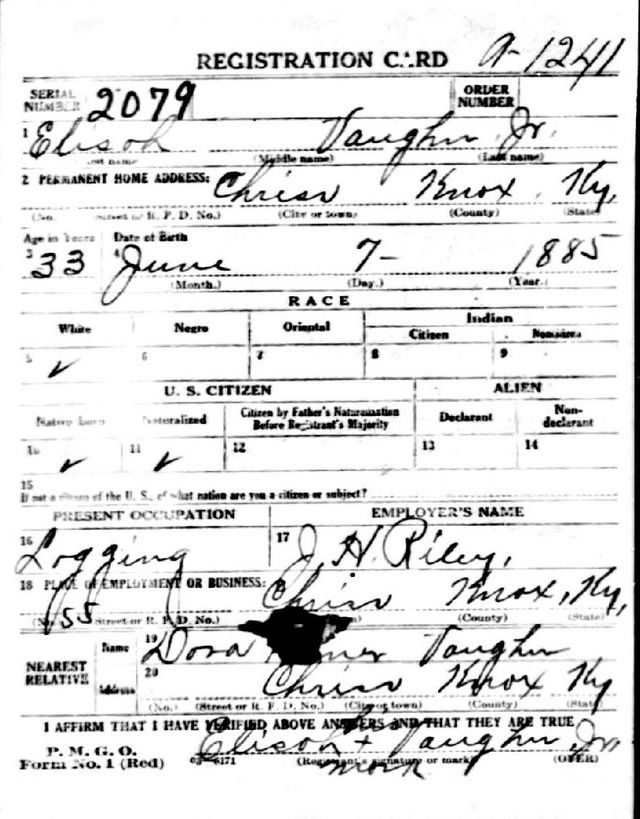 REGISTRATION CARD A-1241
SERIAL NUMBER 2079 ORDER NUMBER
1 Elisoh Vaughn Jr.
(Middle name) (Last name)
2 PERMANENT HOME ADDRESS: Chrisv Knox, Ky,
(No. Street or R. F. D. No.) (City or town) (County) (State)
Age in Years Date of Birth
3 33 4 June 7- 1885
(Month.) (Day.) (Year.)
RACE
White Negro Oriental Indian
Citizen Noncitizen
5 ✓ 6 7 8 9
U. S. CITIZEN ALIEN
Native born Naturalized Citizen by Father's Naturalization Before Registrant's Majority Declarant Non-declarant
10 ✓ 11 ✓ 12 13 14
15
If not a citizen of the U. S., of what nation are you a citizen or subject?
PRESENT OCCUPATION EMPLOYER'S NAME
16 Logging 17 J. H. Riley,
18 PLACE OF EMPLOYMENT OR BUSINESS: Knox, Ky,
(No. 55 Street or R. F. D. No.) (County) (State)
NEAREST RELATIVE
Name 19 Dora Vaughn
Address 20 Knox Ky
(No.) (Street or R. F. D. No.) (City or town) (County) (State)
I AFFIRM THAT I HAVE VERIFIED ABOVE ANSWERS AND THAT THEY ARE TRUE
P. M. G. O.
Form No. 1 (Red) 03-6171 Elisoh his x mark Vaughn, Jr.
(Registrant's signature or mark) (OVER)